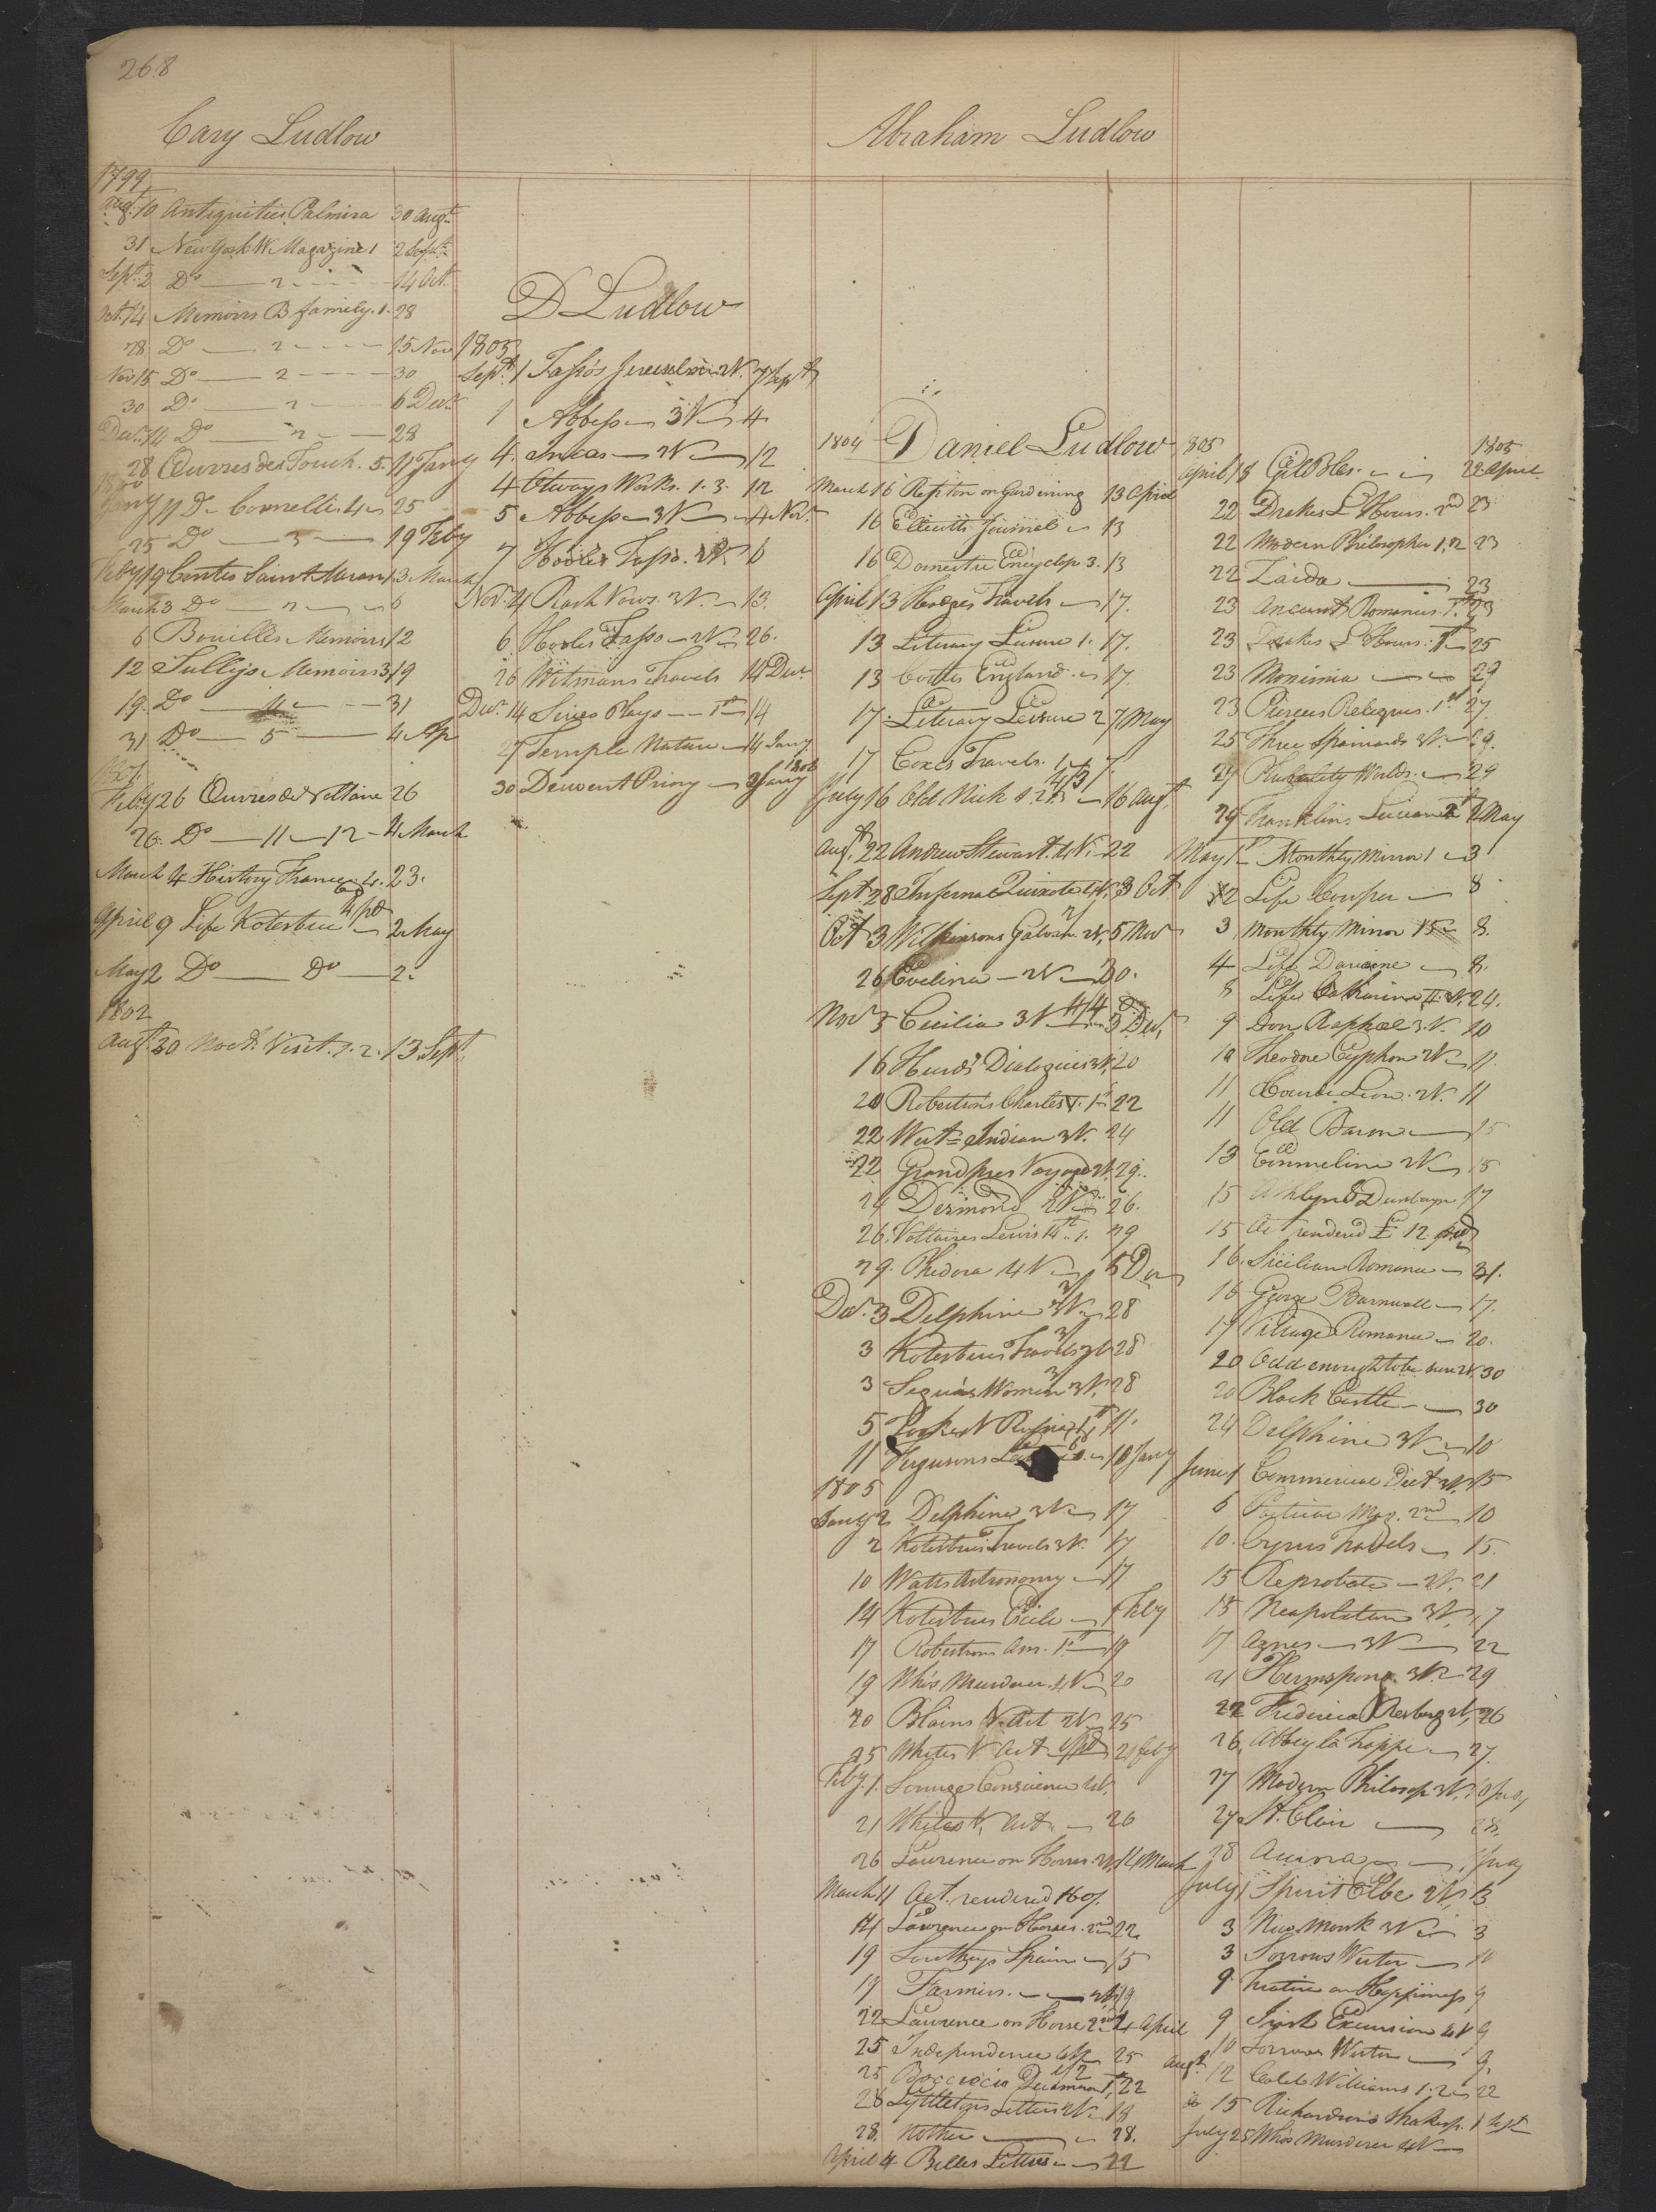 268
Cary Ludlow
1799
Augt. 10 Antiquities Palmira 30 Augt.
31 New York W. Magazine 1 2 Sept.
Sept. 2 Do — 2 — 14 Oct.
Oct. 14 Memoirs B family. 1. 28
28 Do — 2 — 15 Nov
Nov 15 Do — 2 — 30
30 Do — 2 — 6 Decr.
Decr. 14 Do — 2 — 28
28 Œuvres des Touch. 5. 11 Jany
1800
Jany 11 Do Cornelli 4 25
25 Do — 3 — 19 Feby
Feby 19 Contes Saint 1 3 March
March 3 Do — 2 — 6
6 Bouilles Memoirs 12
12 Sullys Memoirs 3 19
19. Do — 4 — 31
31 Do — 5 — 4 Ap
1801
Feby 26 Œuvres de Voltaire 26
26. Do — 11 — 12 — 4 March
March 4 History France 4. 23.
April 9 Life Kotzebue 4/ pd — 2 May
May 2 Do — Do — 2.
1802
Augt. 30 Noct. Visit. 1. 2. 13 Sept.
D Ludlow
1803
Sept. 1 Tasso's Jerusalem 2V. 7 Sept
1 Abbess — 3V — 4
4. Incas — 2V — 12
4 Otways Works. 1. 3. 12
5 Abbess — 3V — 4 Nov.
7 Hooles Tasso. 2V. 6
Nov. 4 Rash Vows. 3V. — 13.
6. Hooles Tasso — 2V — 26.
26 Witmans Travels 14 Decr.
Decr. 14 Plays — 1st — 14
27 Temple Nature — 14 Jany
1804
30 Derwent Priory — 2 Jany
Abraham Ludlow
1804 Daniel Ludlow
March 16 Repton on Gardening 13 April
16 Ellicotts Journal 13
16 Domestic Encyclop 3. 13
April 13 Hodges Travels — 17.
13 Literary Leisure 1. 17.
13 England 17.
17. Literary Leisure 2 7 May
17 Coxes Travels. 1 7.
July 16 Old Nick 3V 4/3 — 16 Augt.
Augt. 22 Andrew Stewart. 22
Sept. 28 Infernal Quixote 4V. 3 Oct
Oct 3 Wilkinsons Galvan. 2V. 5 Nov
26 Evelina — 2V — 30.
Nov 3 Cecilia 3V 4/4 3 Decr.
16 Hurds Dialogues 3V. 20
20 Robertsons Charles V. 1st 22
22 West Indian 3V. 24
22 Grandpres Voyage 2V. 29.
24 Desmond 2V 26.
26. Voltaires Lewis 14th. 1. 29
29. Phedora 4V — 5 De
Decr. 3 Delphine 3V 3/ 28
3 Kotzebues Travels 3V 3/ 28
3 Segurs Women 3V. 3/ 28
5 1st 11.
11 Fergusons 10 Jany
1805
Jany 2 Delphine 3V — 17
2 Kotzebues Travels 3V. 17
10 Watts Astronomy — 17
14 Kotzebues — 1 Feby
17 Robertsons Am. 1st — 19
19 Who's Murderer. 4V — 20
20 Blains V. Art 2V 25
25 Whites V Art 21 feby
Feby. 1. Conscience 4V.
21 Whites V. Art. — 26
26 Laurence on Horses. 2V. 14 March
March 11 Act. rendered 160/.
14 Lawrence on Horses. 2nd 22.
19 Southeys Spain — 15
19 Farmers. — 2V. 19
22 Lawrence on Horse 2nd 4 April
25 Independence 25
25 Boccacio Decameron 1. 2 22
28 Lyttletons Letters 2V. 18
28. Nothen — 28.
April 4 Belles Lettres — 22
1805 1805
April 18 Gil Blas. — 22 April
22 Drakes L Hours. 2nd 23
22 Modern Philosopher 1, 2 23
22 Zaida — 23
23 Ancient Romances. 1st 23
23 Drakes L Hours. 1st 25
23 Monimia — 29
23 Percies Reliques. 1st 27
25 Three Spaniards 3V. — 29.
27 Plurality Worlds. — 29
29 Franklins Lucian 2 May
May 1st Monthly Mirror 1 — 3
2 Life Cowper — 8
3 Monthly Mirror 15 8.
4 Life — 8.
8 Life Catharine II. 3V. 24.
9 Don Raphael 3. V. 10
10 Theodore Cyphon 3V. 11.
11 Coeur de Lion. 2V. 11
11 Old Baron — 15
13 Emmeline 2V — 15
15 Athlyn & Dunbayn 17
15 Act rendered £ 12. pd
16. Sicilian Romance — 31.
16 George Barnwell — 17.
17 Village Romance — 20.
20 Odd enough to be sure 2V. 30
20 Black Castle — 30
24 Delphine 3V — 10
June 1 Commercial Dict 3V. 15
6 Mag. 2nd 10
10. Cyrus Travels — 15.
15 Reprobate — 2V. 21
15 Neapolitan 3V. 17
17 Agnes — 3V — 22
21 Hermsprong 3V. 29
22 Frederica Risberg 2V. 26
26. Abbey la Trappe — 27.
27 Modern Philosop 3V. 10 July
27 St. Clair — 28.
28 — July
July 1 Spirit Elbe 3V. 3.
3 New Monk 3V 3
3 Sorrows Werter — 10
9 on Happiness 9
9 Irish Excursion 4V 9
10 Sorrows Werter — 9.
Augt. 12 Caleb Williams 1. 2 22
15 Richardsons Shaksp. 1 Sept
July 25 Who's Murderer 4V —